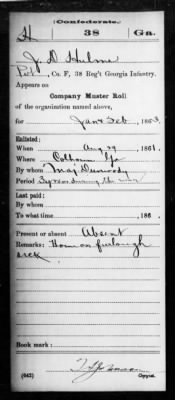 Confederate.
H 38 Ga.
J. D. Hulme
Pvt, Co. F, 38 Reg't Georgia Infantry.
Appears on
Company Muster Roll
of the organization named above,
for Jan & Feb, 1863.
Enlisted:
When Aug 29, 1861.
Where Calhoun Ga
By whom Maj Dunwody
Period 3 yrs or during the war
Last paid:
By whom
To what time , 186 .
Present or absent Absent
Remarks: Home on furlough
sick
Book mark:
(642) Copyist.